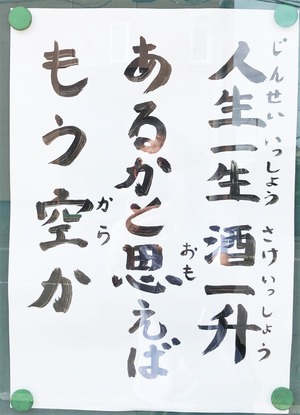 人生一生 酒一升
じんせい いっしょう さけ いっしょう
あるかと思えば
おも
もう空か
から